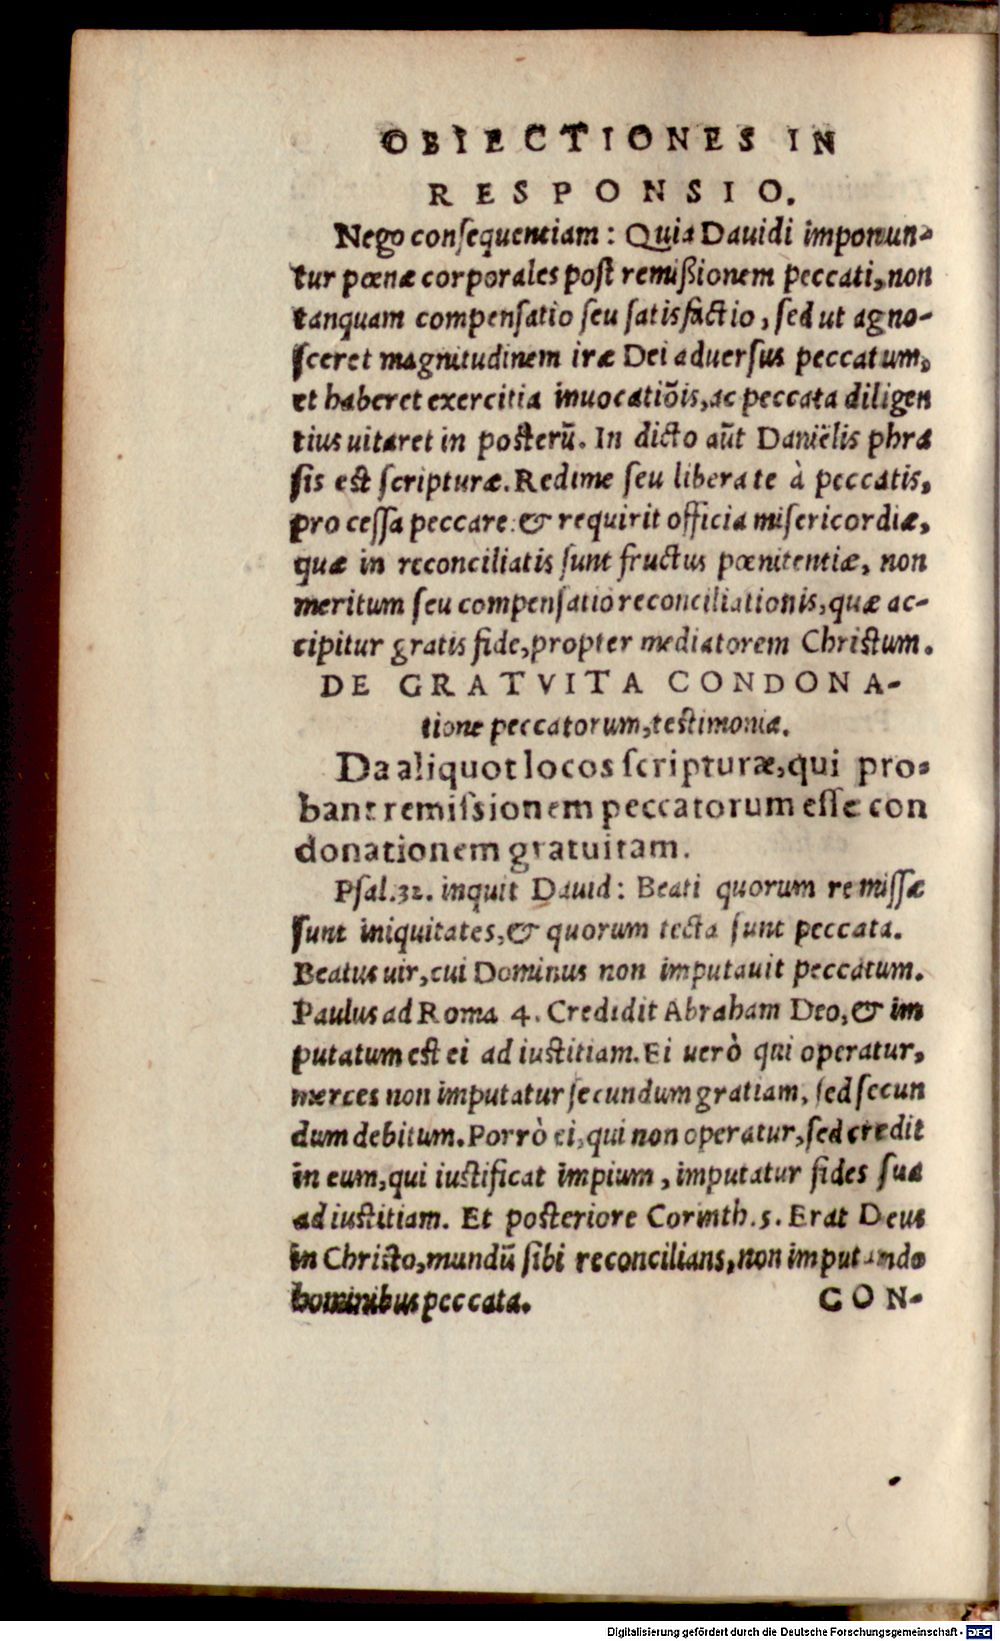 OBIECTIONES IN
RESPONSIO.
Nego consequentiam: Quia Dauidi imponun-
tur pœnæ corporales post remißionem peccati, non
tanquam compensatio seu satisfactio, sed ut agno-
sceret magnitudinem iræ Dei aduersus peccatum,
et haberet exercitia inuocatiōis, ac peccata diligen
tius uitaret in posterū. In dicto aūt Daniëlis phra
sis est scripturæ. Redime seu libera te à peccatis,
pro cessa peccare: & requirit officia misericordiæ,
quæ in reconciliatis sunt fructus pœnitentiæ, non
meritum seu compensatio reconciliationis, quæ ac-
cipitur gratis fide, propter mediatorem Christum.
DE GRATVITA CONDONA-
tione peccatorum, testimonia.
Da aliquot locos scripturæ, qui pro-
bant remissionem peccatorum esse con
donationem gratuitam.
Psal. 32. inquit Dauid: Beati quorum remissæ
sunt iniquitates, & quorum tecta sunt peccata.
Beatus uir, cui Dominus non imputauit peccatum.
Paulus ad Roma 4. Credidit Abraham Deo, & im
putatum est ei ad iustitiam. Ei uerò qui operatur,
merces non imputatur secundum gratiam, sed secun
dum debitum. Porrò ei, qui non operatur, sed credit
in eum, qui iustificat impium, imputatur fides sua
ad iustitiam. Et posteriore Corinth. 5. Erat Deus
in Christo, mundū sibi reconcilians, non imputando
hominibus peccata. CON-
Digitalisierung gefördert durch die Deutsche Forschungsgemeinschaft - DFG